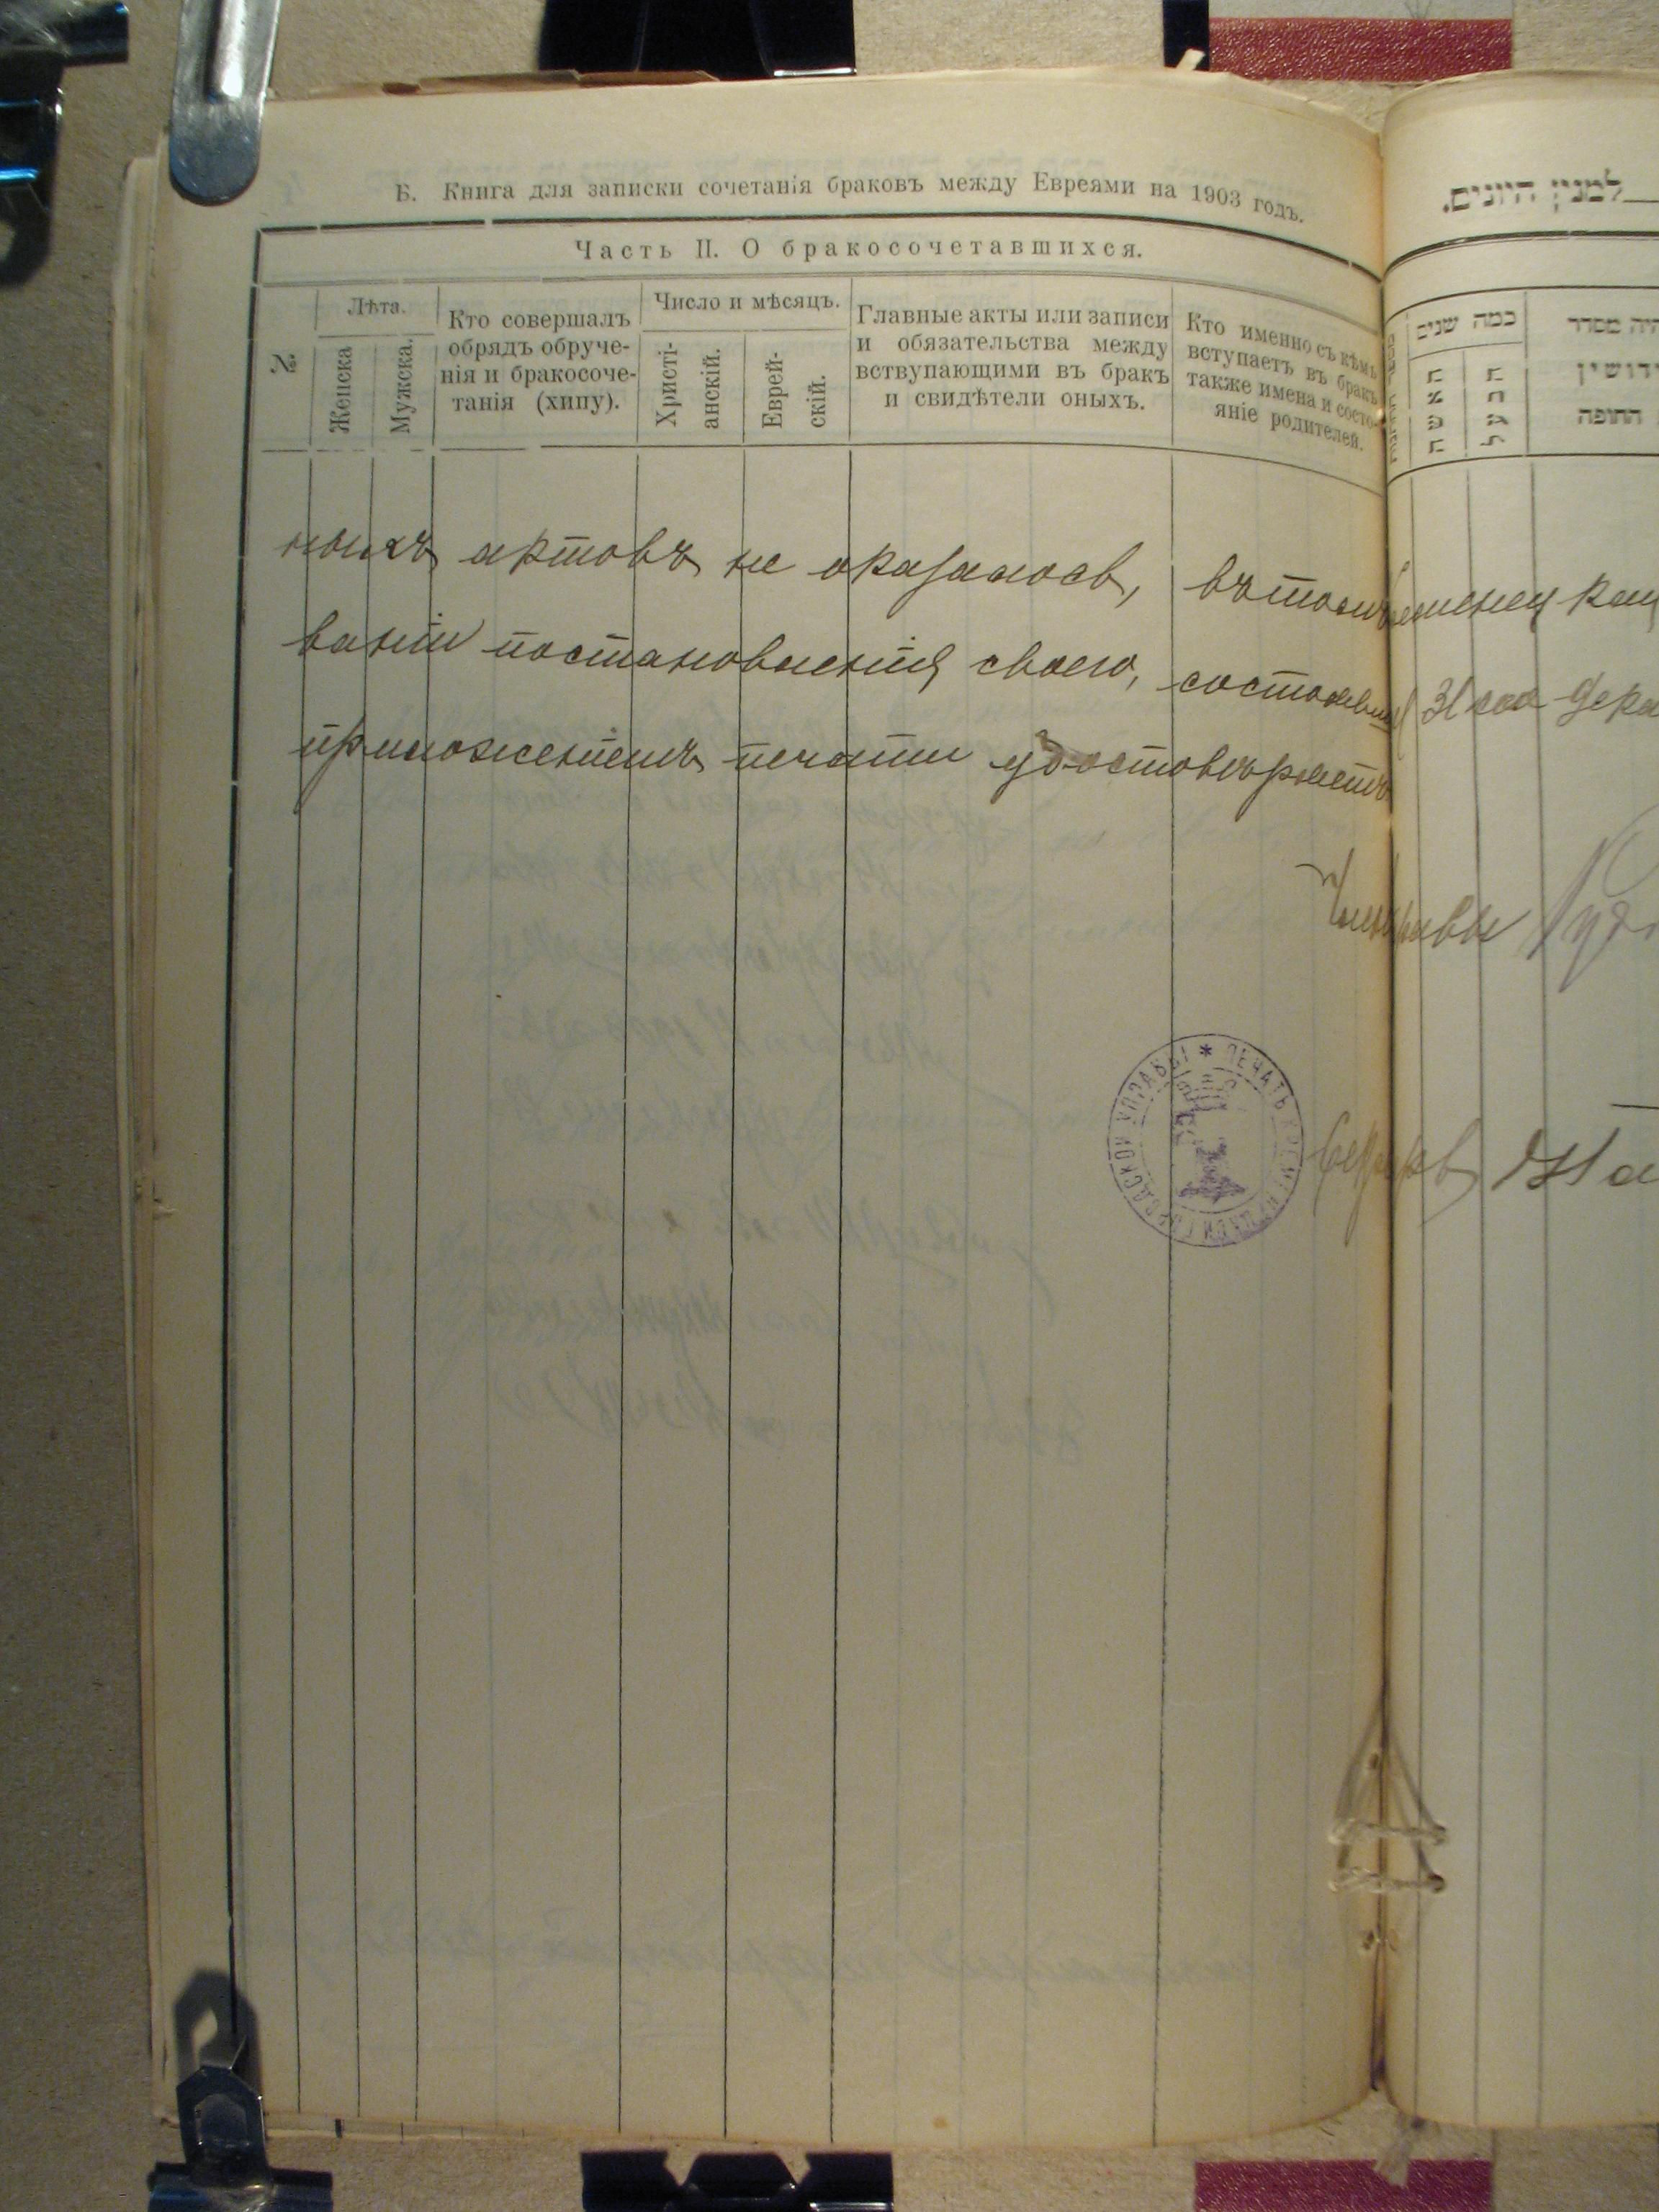 Б. Книга для записки сочетанія браковъ между Евреями на 1903 годъ.
Часть II. О бракосочетавшихся.
№
Лѣта.
Женска
Мужска.
Кто совершалъ
обрядъ обруче-
нія и бракосоче-
танія (хипу).
Число и мѣсяцъ.
Христі-
анскій.
Еврей-
скій.
Главные акты или записи
и обязательства между
вствупающими въ бракъ
и свидѣтели оныхъ.
Кто именно съ кѣмъ
вступаетъ въ бракъ
также имена и состо-
яніе родителей.
ныхъ актовъ не оказалось, въ томъ
ваніи постановленія своего, состоявш 31 го дека
приложеніемъ печати удостовѣряетъ
ПЕЧАТЬ ГОРОДСКОЙ УПРАВЫ
למנין היונים.
כמה שנים
האשה
הבעל
היה מסדר
החופה